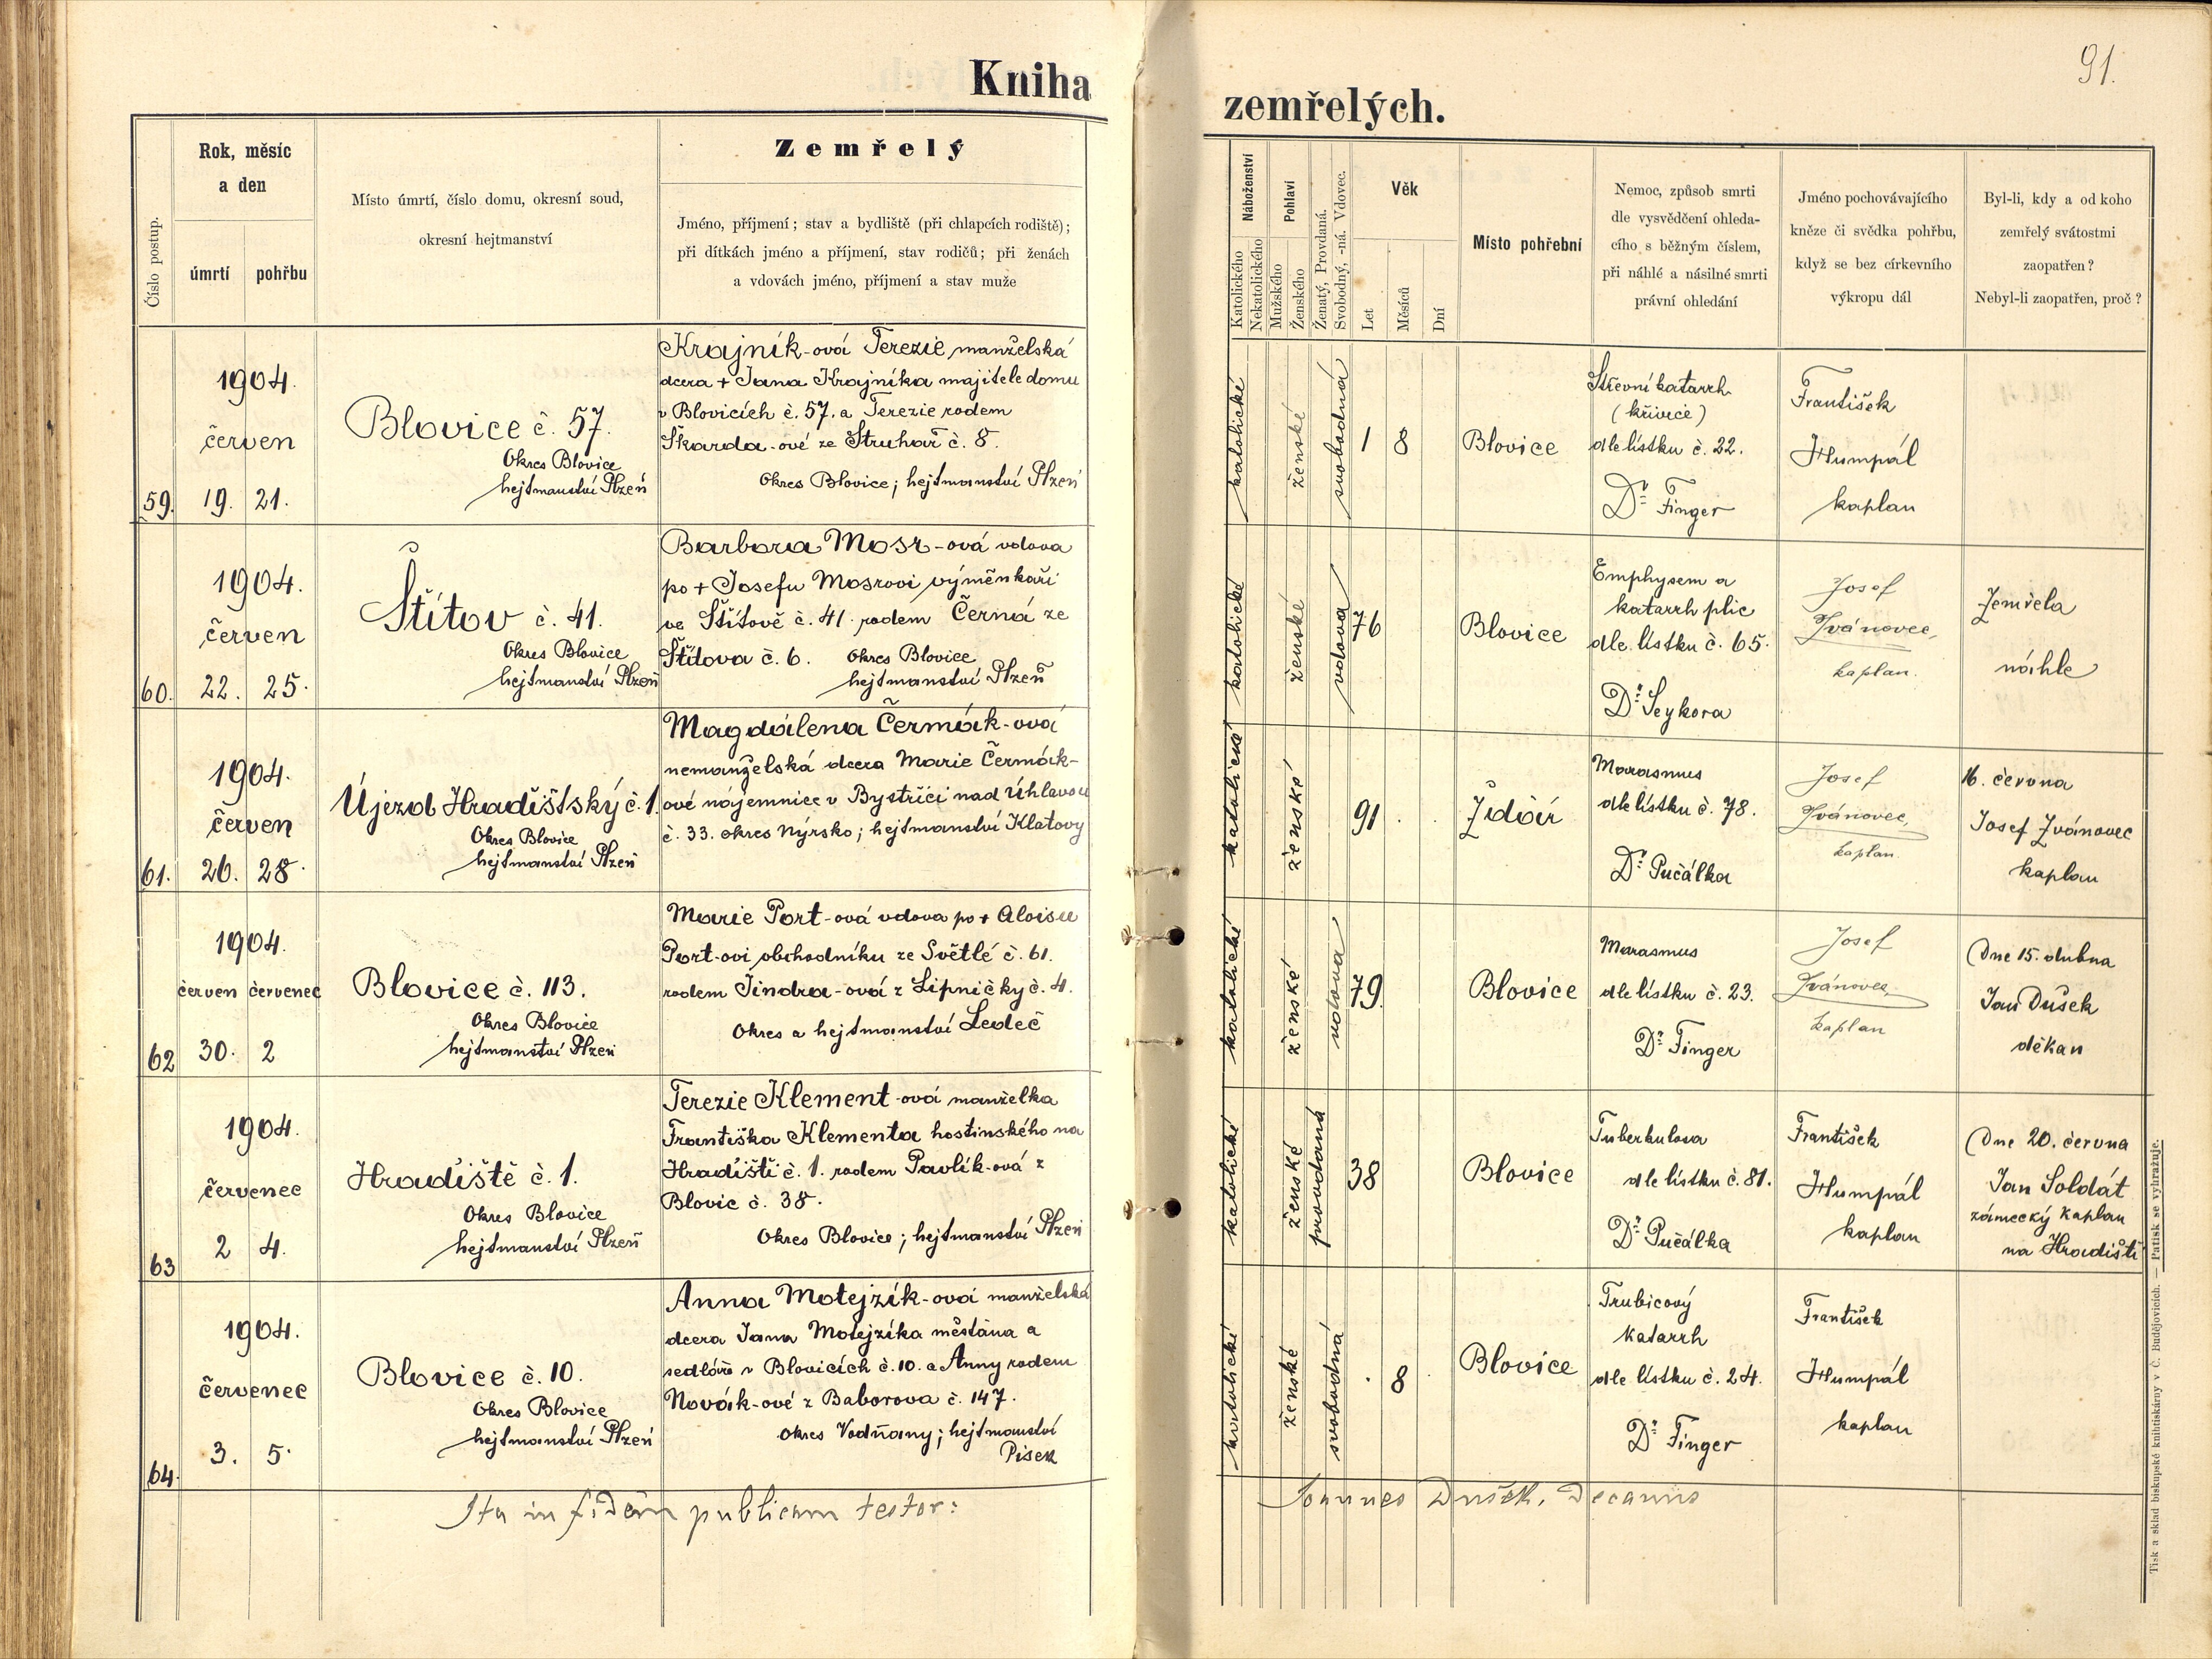 91.
Kniha zemřelých.
Číslo postup.
Rok, měsíc
a den
úmrtí
pohřbu
Místo úmrtí, číslo domu, okresní soud,
okresní hejtmanství
Zemřelý
Jméno, příjmení; stav a bydliště (při chlapcích rodiště);
při dítkách jméno a příjmení, stav rodičů; při ženách
a vdovách jméno, příjmení a stav muže
Náboženství
Katolického
Nekatolického
Pohlaví
Mužského
Ženského
Ženatý, Provdaná.
Svobodný, -ná. Vdovec.
Věk
Let
Měsíců
Dní
Místo pohřební
Nemoc, způsob smrti
dle vysvědčení ohleda-
cího s běžným číslem,
při náhlé a násilné smrti
právní ohledání
Jméno pochovávajícího
kněze či svědka pohřbu,
když se bez církevního
výkropu dál
Byl-li, kdy a od koho
zemřelý svátostmi
zaopatřen?
Nebyl-li zaopatřen, proč?
59.
1904.
červen
19. 21.
Blovice č. 57.
Okres Blovice
hejtmanství Plzeň
Krajník-ová Terezie manželská
dcera + Jana Krajníka majitele domu
v Blovicích č. 57. a Terezie rodem
Škarda-ové ze Struhař č. 8.
Okres Blovice; hejtmanství Plzeň
katolické
ženské
svobodná
1 8
Blovice
Střevní katarrh
(křivice)
dle lístku č. 22.
Dr. Finger
František
Humpál
kaplan
60.
1904.
červen
22. 25.
Štítov č. 41.
Okres Blovice
hejtmanství Plzeň
Barbora Mosr-ová vdova
po + Josefu Mosrovi výměnkaři
ve Štítově č. 41. rodem Černá ze
Štítova č. 6. Okres Blovice
hejtmanství Plzeň
katolické
ženské
vdova
76
Blovice
Emphysem a
katarrh plic
dle lístku č. 65.
Dr. Seykora
Josef
Ivánovec,
kaplan.
Zemřela
náhle
61.
1904.
červen
26. 28.
Újezd Hradišťský č. 1.
Okres Blovice
hejtmanství Plzeň
Magdálena Čermák-ová
nemanželská dcera Marie Čermák-
ové nájemnice v Bystřici nad Úhlavou
č. 33. okres Nýrsko; hejtmanství Klatovy
katolické
ženské
91
Ždár
Marasmus
dle lístku č. 78.
Dr. Pučálka
Josef
Ivánovec,
kaplan.
16. června
Josef Ivánovec
kaplan
62
1904.
červen červenec
30. 2
Blovice č. 113.
Okres Blovice
hejtmanství Plzeň
Marie Port-ová vdova po + Aloisu
Port-ovi obchodníku ze Světlé č. 61.
rodem Jindra-ová z Lipničky č. 4.
Okres a hejtmanství Ledeč
katolické
ženské
vdova
79.
Blovice
Marasmus
dle lístku č. 23.
Dr. Finger
Josef
Ivánovec,
kaplan
Dne 15. dubna
Jan Dušek
děkan
63
1904.
červenec
2 4.
Hradiště č. 1.
Okres Blovice
hejtmanství Plzeň
Terezie Klement-ová manželka
Františka Klementa hostinského na
Hradišti č. 1. rodem Pavlík-ová z
Blovic č. 38.
Okres Blovice; hejtmanství Plzeň
katolické
ženské
provdaná
38
Blovice
Tuberkulosa
dle lístku č. 81.
Dr. Pučálka
František
Humpál
kaplan
Dne 20. června
Jan Soldát
zámecký kaplan
na Hradišti
64.
1904.
červenec
3. 5.
Blovice č. 10.
Okres Blovice
hejtmanství Plzeň
Anna Motejzík-ová manželská
dcera Jana Motejzíka měšťana a
sedláře v Blovicích č. 10. a Anny rodem
Novák-ové z Baborova č. 147.
okres Vodňany; hejtmanství
Písek
katolické
ženské
svobodná
. 8
Blovice
Trubicový
katarrh
dle lístku č. 24.
Dr. Finger
František
Humpál
kaplan
Ita in fidem publicam testor: Joannes Dušek, Decanus
Tisk a sklad biskupské knihtiskárny v Č. Budějovicích. — Patisk se vyhražuje.